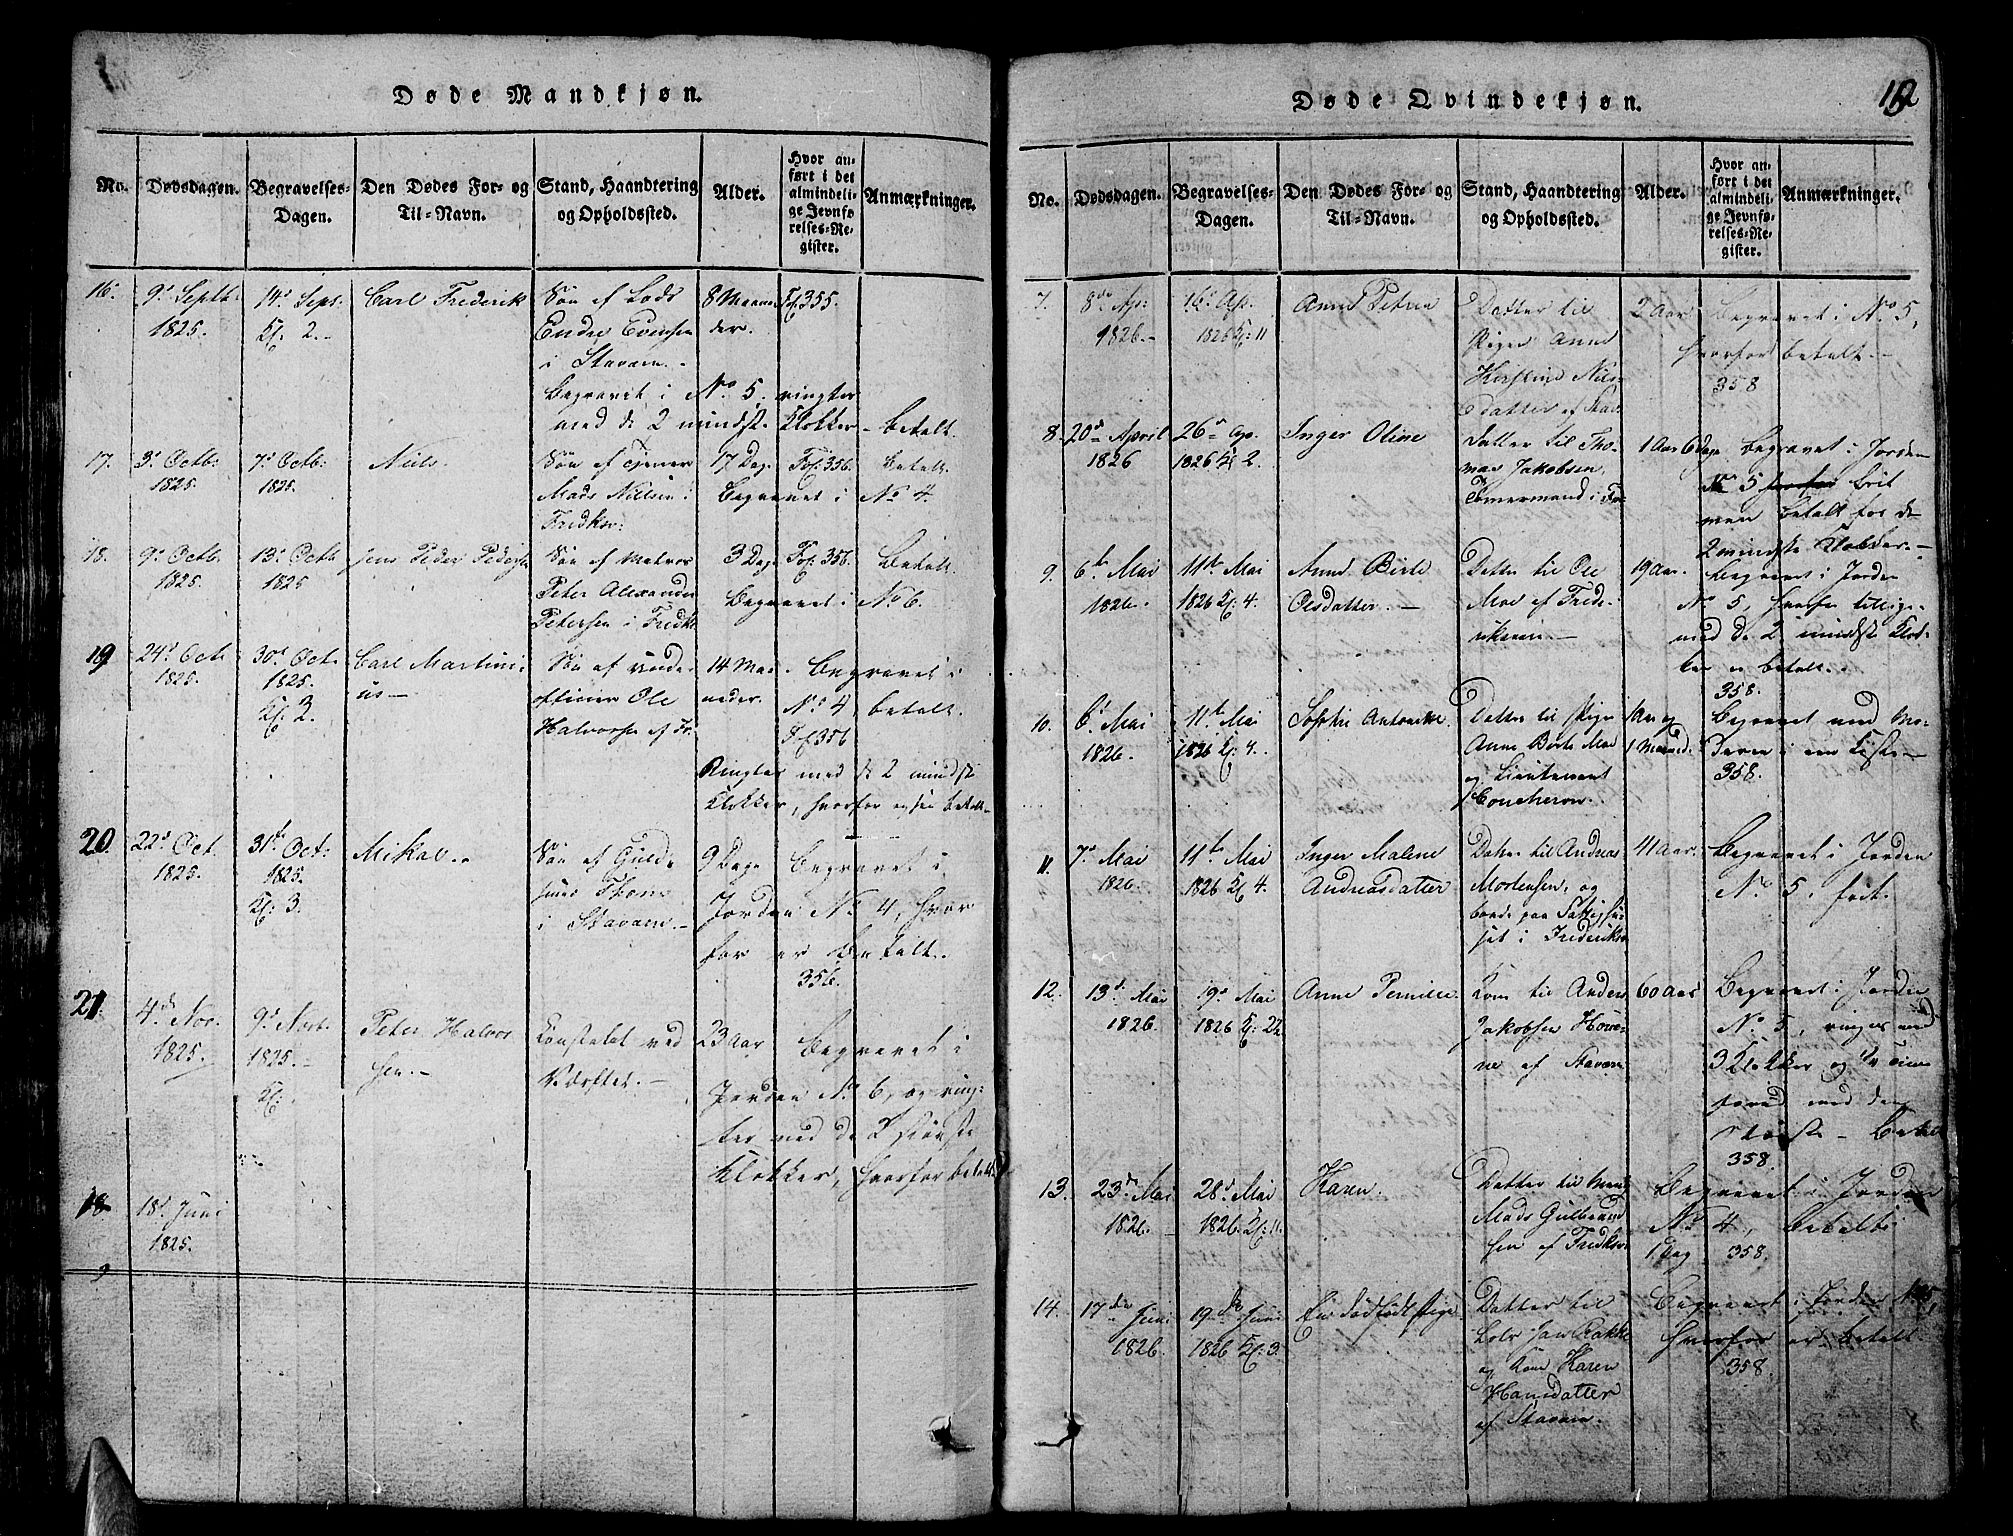 Døde Mandkjøn.
No.
Dødsdagen.
Begravelses-
Dagen.
Den Dødes For- og
Til-Navn.
Stand, Haandtering
og Opholdssted.
Alder.
Hvor an-
ført i det
almindeli-
ge Jevnfø-
relses-Re-
gister.
Anmærkninger.
16.
9d Septb.
1825.
14d Sept.
Kl. 2.
Carl Frederik
Søn af Lods
Endre Evensen
i Staværn.
8 Maane
der.
Fol. 355.
Begravet i No 5, ringtes
med de 2 mindste Klokker betalt.
17.
3d Octb:
1825.
7d Octb.
1825.
Niels
Søn af
Mads Nielsen i
Fredksv:
17 Dage
Fol. 356.
betalt
Begravet i No 4.
18.
9d Octb.
1825.
13d Octb
1825
Jens Peder Pedersen
Søn af Matros
Peter Alexander
Petersen i Fredks
3 Dage
Fol. 356.
Betalt.
Begravet i No 6.
19
24d Octb
1825.
30d Oct.
1825.
Kl. 3.
Carl Martini
us
Søn af under
officier Ole
Halvorsen af Fr.
14 Maa-
neder.
Begravet i
No 4 betalt.
Fol 356
Ringtes med de 2 mindste
Klokker, hvorfor ogsaa betalt
20.
22d Oct.
1825.
31te Oct:
1825.
Kl. 3.
Mikal
Søn af Guld
smed
i Staværn.
9 Dage
Begravet i
Jorden No 4, hvor
for er betalt.
356.
21.
4de Nov.
1825.
9d Novb.
1825.
Kl:
Peter Halvor
sen.
Constabel ved
Værftet.
23 Aar
Begravet i
Jorden No 6, og ring-
tes med de 2 største
Klokker, hvorfor betalt
18.
18d Juni
1825.
Døde Qvindekjøn.
12
No.
Dødsdagen.
Begravelses-
Dagen.
Den Dødes For- og
Til-Navn.
Stand, Haandtering
og Opholdssted.
Alder.
Hvor an-
ført i det
almindeli-
ge Jevnfø-
relses-Re-
gister.
Anmærkninger.
7.
8de Ap:
1826.
16d Ap.
1826 Kl: 11
Anne Petrea
Datter til
Pigen Anne
Kirstine Niels-
datter af Stav.
2 Aar
Begravet i No 5,
hvorfor betalt.
358
8.
20d April
1826
26d Ap.
1826 Kl 2.
Inger Oline
Datter til Tho-
mas Jakobsen,
Tømermand i Fr.
1 Aar 6 Dage
Begravet i Jorden
No 5 hvorfor frit
men betalt for de
2 mindste Klokker.
9.
6te Mai
1826.
11te Mai
1826 Kl. 4.
Anne Birte
Olsdatter.
Datter til Ole
Moe af Frede-
riksværn.
19 Aar.
Begravet i Jorden
No 5, hvorfor tillige-
med de 2 mindste Klok-
ker er betalt.
358.
10.
6d Mai
1826.
11te Mai
1826 Kl. 4.
Sophie Antonette
Datter til Pige
Anne Birte Moe
og Lieutenant
Coucheron.
1 Aar og
1 Maaned.
Begravet med Mo-
deren i een Kiste
358.
11.
7d Mai
1826.
11te Mai
1826 Kl 4.
Inger Malene
Andreasdatter
Datter til Andreas
Mortensen, og
boede paa Fattighu-
set i Frederiksv
41 Aar.
Begravet i Jorden
No 5, frit.
12.
13d Mai
1826.
19d Mai
1826 Kl: 2½
Anne Pernille
Kone til Anders
Jakobsen
af Stavern
60 Aar
Begravet i Jorden
No 5, ringes med
3 Klokker og ½ Time
forud med den
største Betalt
358.
13.
23de Mai
1826.
28d Mai
1826 Kl: 11.
Karen.
Datter til
Mads Gulbrand
sen af Fredksv.
1 Dag
Begravet i Jorden
No 4, betalt.
358.
14.
17de Juni
1826.
19de Juni
1826 Kl: 3.
En dødfødt Pige
Datter til
Lods Jan Bakke
og Kone Karen
Hansdatter
af Staværn.
Begravet i Jorden No 5,
hvorfor er betalt
358.